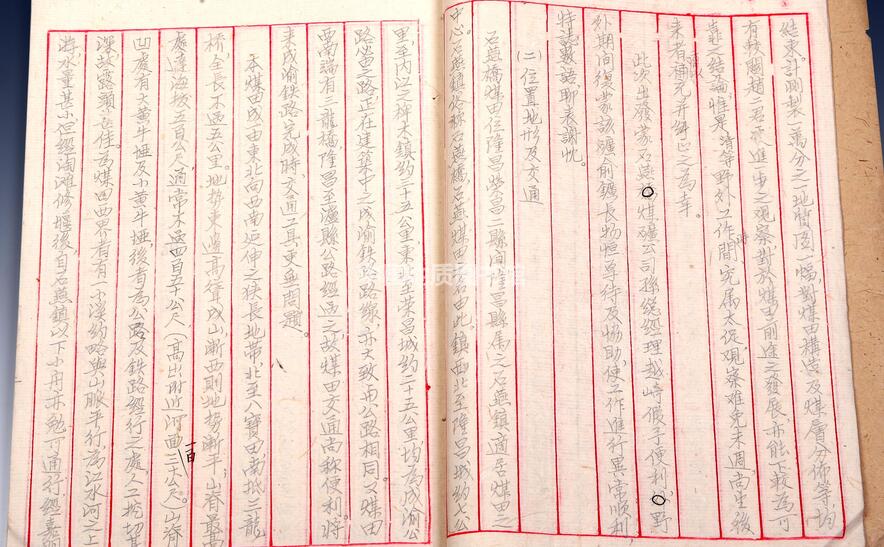 結束。計測製一萬分之一地質圖一幅,對煤田構造及煤層分佈等,均
有較關趙二君更進步之觀察,對於煤田前途之發展,亦能下較為可
靠之結論,惟是清等野外工作時間究屬太促,觀察難免未週,尚望後
來者補充并糾正之為幸。
此次出發蒙石燕煤礦公司孫總經理越崎假予便利,野
外期間復蒙該礦俞鑛長物恒厚待及協助,使工作進行異常順利,
特誌數語,聊表謝忱。
(二)位置地形及交通
石燕橋煤田位隆昌榮昌二縣間隆昌縣屬之石燕鎮適居煤田之
中心。石燕鎮俗稱石燕橋,石燕煤田名由此。鎮西北至隆昌城約七公
里,至內以二椑木鎮約三十五公里,東北至榮昌城約二十五公里,均為成渝公
路當之路正在建築中之成渝鐵路線,亦大致與公路相同。又煤田
西南端有三龍橋,隆昌至瀘縣公路經過之,故煤田交通尚稱便利。將
來成渝鐵路完成時,交通工具更無問題。
本煤田成由東北向西南延伸之狹長地帶,北至八寶田,南抵三龍
橋,全長不過五公里。地勢東邊高聳成山,漸西則地勢漸平,山脊最高
處達海拔五百公尺,通常不過四百五十公尺(高出附近河面一百三十公尺)。山脊
凹處有大黃牛埡及小黃牛埡,後者為公路及鐵路經行之處,人工挖切甚
深,故露頭甚佳。為煤田西界者有一小溪,約略與山脈平行,為沱水河之上
游,水量甚小,但經淘灘修堰後,自石燕鎮以下小舟亦勉可通行,經嘉明